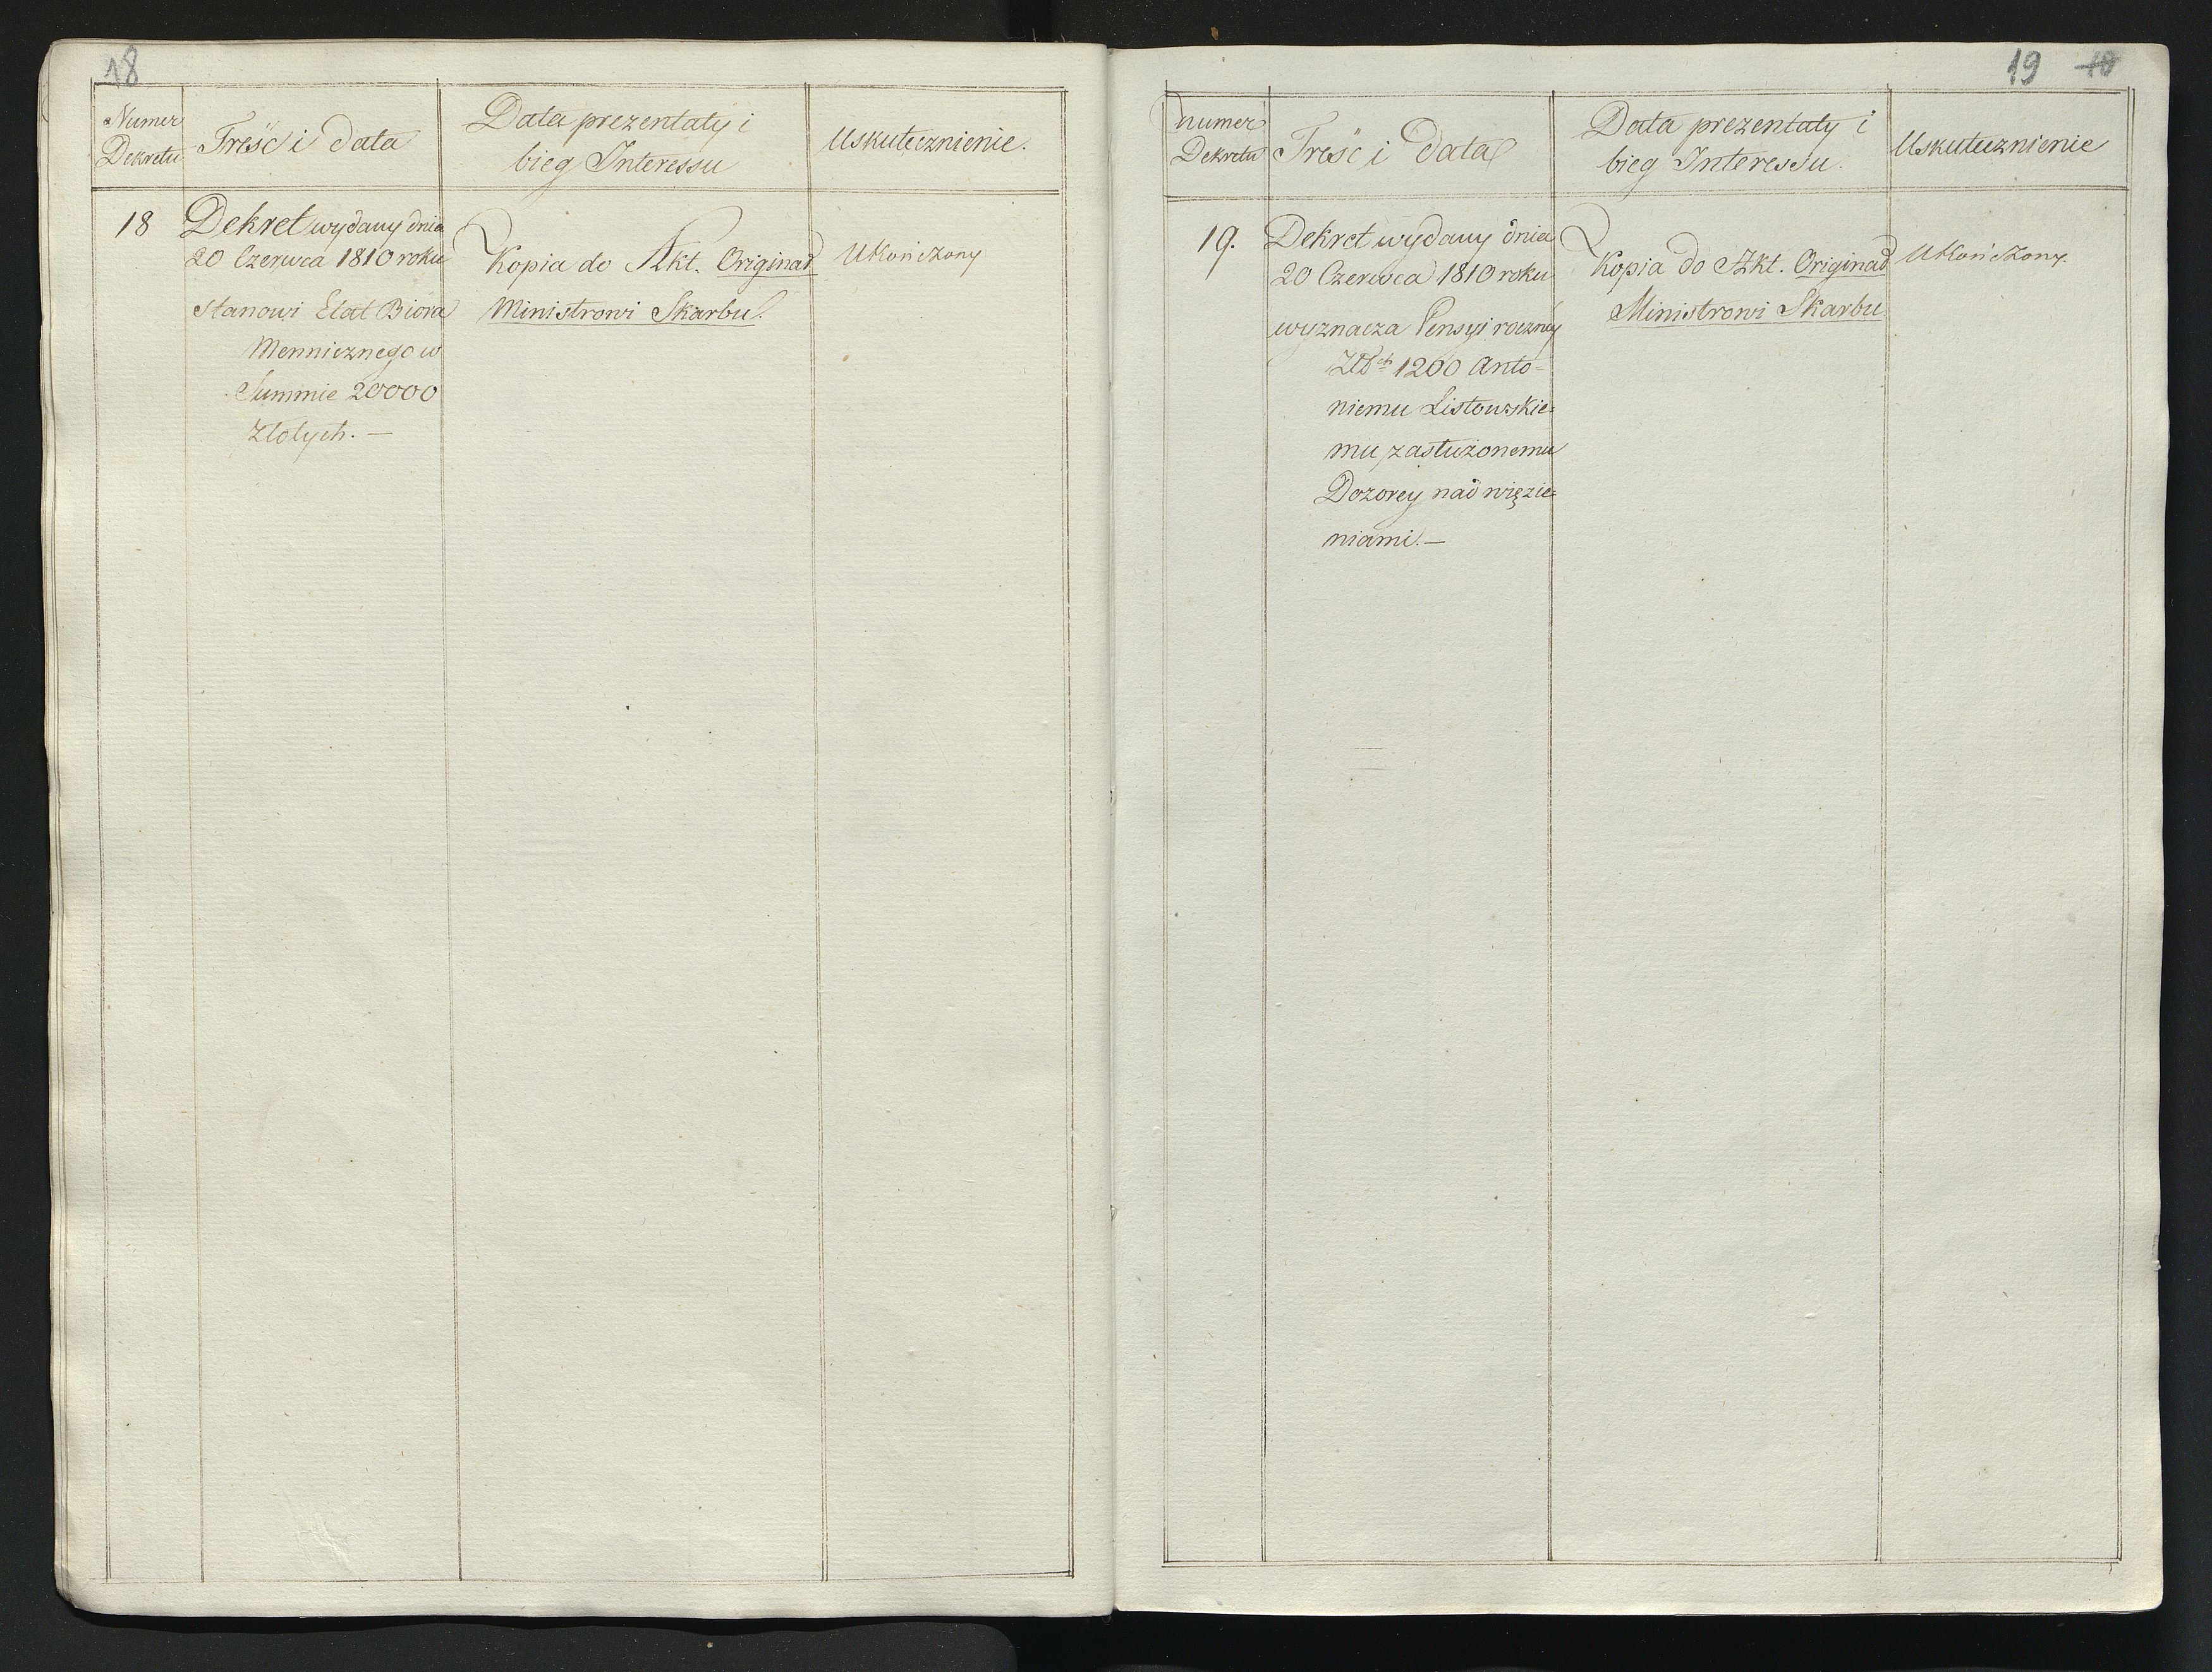 18
Numer
Dekretu
Treść i data
Data prezentaty i
bieg Interessu
Uskutecznienie.
18
Dekret wydany dnia
20 Czerwca 1810 roku
stanowi Etat Biora
Mennicznego w
Summie 20000
Złotych. —
Kopia do Akt. Originał
Ministrowi Skarbu.
Ukończony
19 10
numer
Dekretu
Treść i data
Data prezentaty i
bieg Interessu.
Uskutecznienie
19.
Dekret wydany dnia
20 Czerwca 1810 roku
wyznacza Pensyi roczney
Złłch 1200 Anto=
niemu Listowskie=
mu, zasłużonemu
Dozorcy nad więzie=
niami. —
Kopia do Akt. Originał
Ministrowi Skarbu
Ukończony